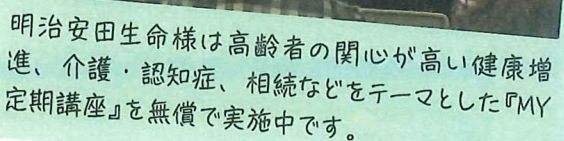 明治安田生命様は高齢者の関心が高い健康増
進、介護・認知症、相続などをテーマとした『MY
定期講座』を無償で実施中です。